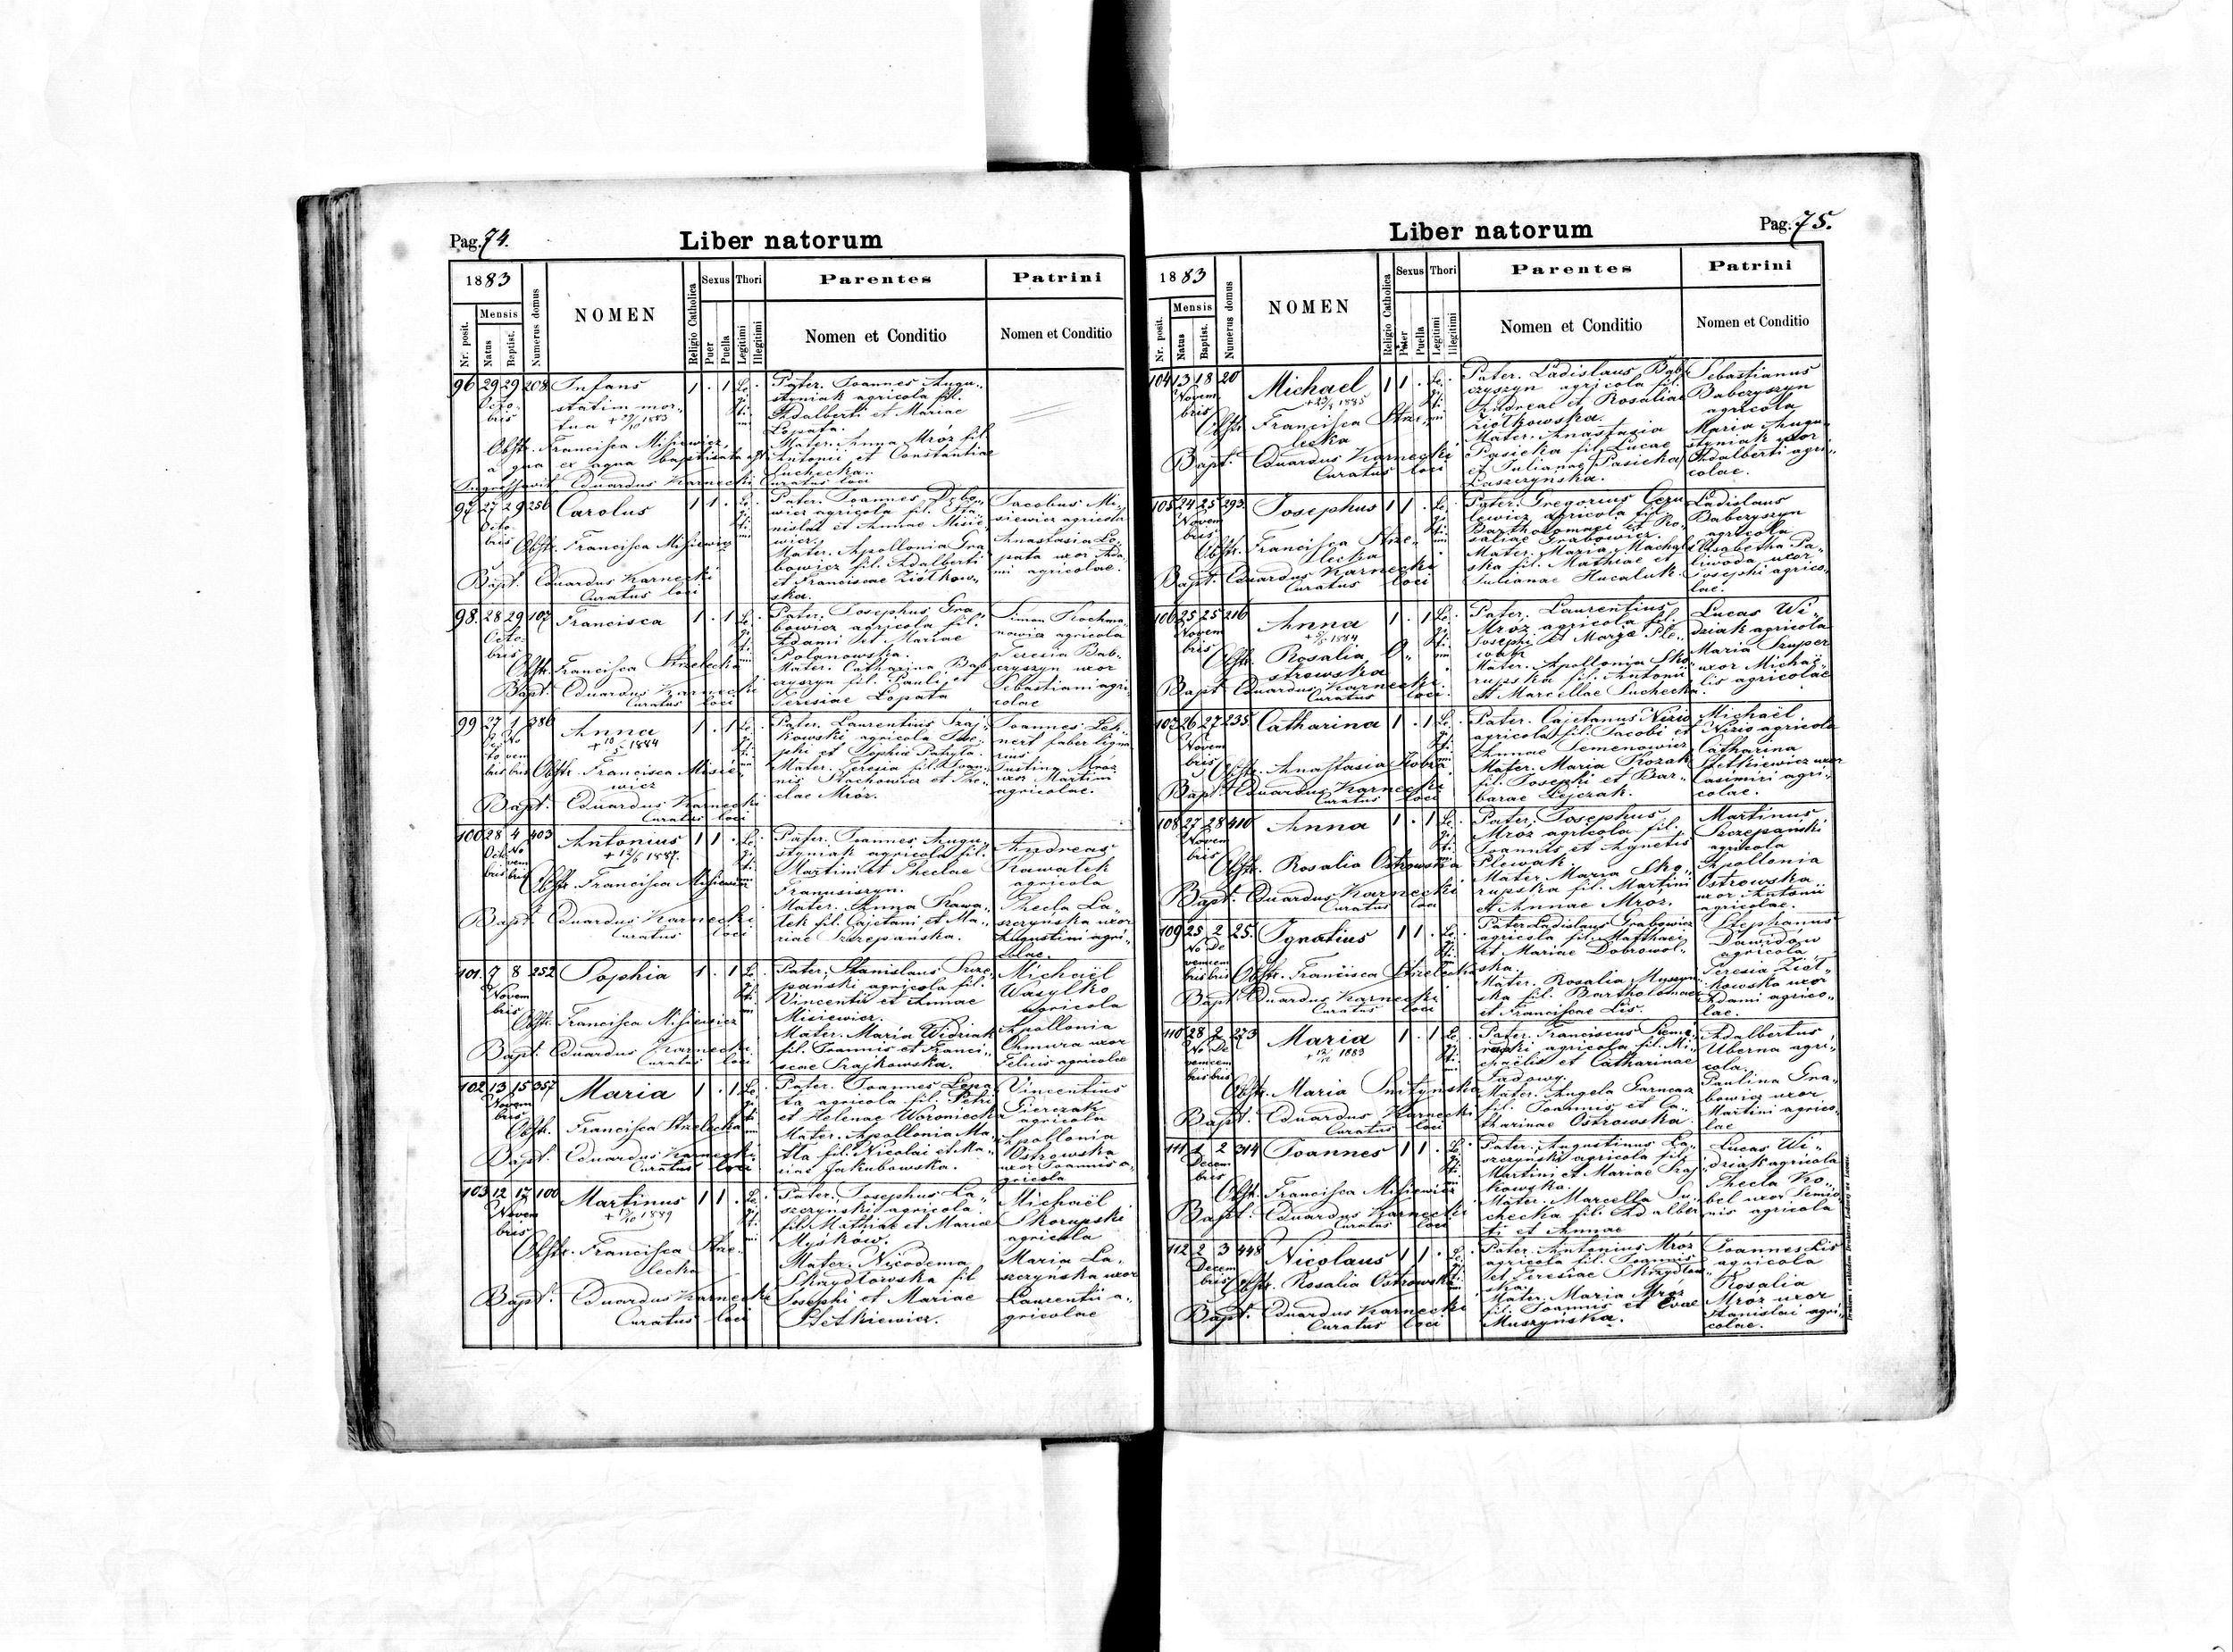 Pag. 74.
Liber natorum
1883
Mensis
Nr. posit.
Natus
Baptist.
Numerus domus
NOMEN
Religio Catholica
Sexus
Puer
Puella
Thori
Legitimi
Illegitimi
Parentes
Nomen et Conditio
Patrini
Nomen et Conditio
96 29 29 208 Infans 1 . 1
Octo-
bris
statim mor-
tua + 29/10 1883
Obstr. Francisca Misiewicz
a qua ex aqua baptisata est
Ingrossavit Eduardus Karnecki Curatus loci
Pater. Joannes Augu-
styniak agricola fil.
Adalberti et Mariae
Lopata.
Mater. Anna Mróz fil
Antonii et Constantiae
Suchecka.
97 27 29 256 Carolus 1 1 .
Octo-
bris
Obstr. Francisca Misiewicz
Bapt. Eduardus Karnecki
Curatus loci
Pater. Joannes
wicz agricola fil. Sta-
nislai et Annae Misie
wicz.
Mater. Apollonia Gra
bowicz fil. Adalberti
et Franciscae Ziółkow-
ska.
Jacobus Mi-
siewicz agricola
Anastasia Lo-
pata uxor Ada-
mi agricolae.
98. 28 29 107 Francisca 1 . 1
Octo-
bris
Obstr. Francisca Strzelecka
Bapt. Eduardus Karnecki
Curatus loci
Pater. Josephus Gra-
bowicz agricola fil.
Adami et Mariae
Polanowska.
Mater. Catharina Bab
czyszyn fil. Pauli et
Teresiae Lopata
Simon Kochma-
nowicz agricola
Teresia Bab-
czyszyn uxor
Sebastiani agri
colae
99 27 1 386 Anna 1 . 1
Octo No
bris bris
1884
Obstr. Francisca Misie-
wicz
Bapt. Eduardus Karnecki
Curatus loci
Pater. Laurentius Traj-
kowski agricola Jose-
phi et Sophia
Mater. Teresia fil. Joan-
nis Stachowicz et The-
clae Mróz.
Joannes Leh-
nert faber ligna
rius
Justina Mróz
uxor Martini
agricolae.
100 28 4 403 Antonius 1 1 .
Octo No
vem
bris bris
+ 12/6 1887.
Obstr. Francisca Misiewicz
Bapt. Eduardus Karnecki
Curatus loci
Pater. Joannes Augu-
styniak agricola fil.
Martini et Theclae
Franusiszyn.
Mater. Anna Kawa-
lek fil. Cajetani et Ma-
riae Szczepanska.
Andreas
Kawalek
agricola
Thecla La-
szczynska uxor
Augustini agri-
colae.
101. 7 8 252 Sophia 1 . 1
Novem
bris
Obstr. Francisca Misiewicz
Bapt. Eduardus Karnecki
Curatus loci
Pater. Stanislaus Szcze
panski agricola fil.
Vincentii et Annae
Misiewicz.
Mater. Maria Widziak
fil. Joannis et Franci-
scae Trajkowska.
Michaël
Wasylko
agricola
Apollonia
Chmura uxor
Felicis agricolae
102 13 15 357 Maria 1 . 1
Novem
bris
Obstr. Francisca Strzelecka
Bapt. Eduardus Karnecki
Curatus loci
Pater. Joannes Lopa
ta agricola fil. Petri
et Helenae Woroniecka
Mater. Apollonia Ma-
tla fil. Nicolai et Ma-
riae Jakubowska.
Vincentius
Gierczak
agricola
Apollonia
Ostrowska
uxor Joannis a-
gricola
103 12 17 100 Martinus 1 1 .
Novem
bris
1889
Obstr. Francisca Strze-
lecka
Bapt. Eduardus Karnecki
Curatus loci
Pater. Josephus La-
szczynski agricola
fil. Mathiae et Mariae
Myśków.
Mater. Nicodema
Skrzydłowska fil
Josephi et Mariae
Stetkiewicz.
Michaël
Skorupski
agricola
Maria La-
szczynska uxor
Laurentii a-
gricolae
Pag. 75.
Liber natorum
1883
Mensis
Nr. posit.
Natus
Baptist.
Numerus domus
NOMEN
Religio Catholica
Sexus
Puer
Puella
Thori
Legitimi
Illegitimi
Parentes
Nomen et Conditio
Patrini
Nomen et Conditio
104 13 18 20 Michael 1 1 .
Novem
bris
1885
Obstr. Francisca Strze-
lecka
Bapt. Eduardus Karnecki
Curatus loci
Pater. Ladislaus Bab
czyszyn agricola fil.
Andreae et Rosaliae
Ziółkowska.
Mater. Anastasia
Pasicka fil. Lucae
et Julianae Pasicka
Laszczynska.
Sebastianus
Babczyszyn
agricola
Maria Augu-
styniak uxor
Adalberti agri-
colae.
105 24 25 293 Josephus 1 1 .
Novem
bris
Obstr. Francisca Strze-
lecka
Bapt. Eduardus Karnecki
Curatus loci
Pater. Gregorius Czru
lewicz agricola fil.
Bartholomaei et Ro-
saliae Grabowicz.
Mater. Maria Machal
ska fil. Mathiae et
Julianae Hucaluk.
Ladislaus
Babczyszyn
agricola
Elisabetha Pa-
liwoda uxor
Josephi agrico-
lae.
106 25 25 216 Anna 1 . 1
Novem
bris
1884
Obstr. Rosalia O-
strowska
Bapt. Eduardus Karnecki
Curatus loci.
Pater. Laurentius
Mróz agricola fil.
Josephi et Mariae Ple-
wak
Mater. Apollonia Sko-
rupska fil. Antonii
et Marcellae Suchecka.
Lucas Wi-
dziak agricola
Maria Szuper
uxor Michaë-
lis agricolae
107 26 27 235 Catharina 1 . 1
Novem
bris
Obstr. Anastasia Kobza
Bapt. Eduardus Karnecki
Curatus loci
Pater. Cajetanus Nizio
agricola fil. Jacobi et
Annae Semenowicz.
Mater. Maria Kozak
fil. Josephi et Bar-
barae Lejczak.
Michaël
Nizio agricola
Catharina
Stetkiewicz uxor
Casimiri agri-
colae.
108 27 28 410 Anna 1 . 1
Novem
bris
Obstr. Rosalia Ostrowska
Bapt. Eduardus Karnecki
Curatus loci
Pater. Josephus
Mróz agricola fil.
Joannis et Agnetis
Plewak.
Mater. Maria Sko-
rupska fil. Martini
et Annae Mróz.
Martinus
Szczepanski
agricola
Apollonia
Ostrowska
uxor Antonii
agricolae.
109 25 2 25. Ignatius 1 1 .
No De
vem cem
bris bris
Obstr. Francisca Strzelecka
Bapt. Eduardus Karnecki
Curatus loci
Pater Ladislaus Grabowicz
agricola fil. Matthaei
et Mariae Dobrowol-
ska.
Mater. Rosalia Muszyn-
ska fil. Bartholomaei
et Franciscae Lis.
Stephanus
Dawidów
agricola
Teresia Ziół-
kowska uxor
Adami agrico-
lae.
110 28 2 273 Maria 1 . 1
No De
vem cem
bris bris
1883
Obstr. Maria Smitynska
Bapt. Eduardus Karnecki
Curatus loci
Pater. Franciscus
agricola fil. Mi-
chaëlis et Catharinae
Sadowy.
Mater. Angela Garncarz
fil. Joannis et Ca-
tharinae Ostrowska.
Adalbertus
Uberna agri-
cola.
Paulina Gra-
bowicz uxor
Martini agrico-
lae
111 1 2 314 Joannes 1 1 .
Decem
bris
Obstr. Francisca Misiewicz
Bapt. Eduardus Karnecki
Curatus loci
Pater. Augustinus La-
szczynski agricola fil.
Martini et Mariae Traj-
kowska.
Mater. Marcella Su-
checka fil. Adalber
ti et Annae
Lucas Wi-
dziak agricola
Thecla Ko-
bel uxor Semio-
nis agricola
112 2 3 448 Nicolaus 1 1 .
Decem
bris
Obstr. Rosalia Ostrowska
Bapt. Eduardus Karnecki
Curatus loci
Pater. Antonius Mróz
agricola fil. Joannis
et Teresiae Skrzydlow-
ska.
Mater. Maria Mróz
fil. Joannis et Evae
Muszynska.
Joannes Lis
agricola
Rosalia
Mróz uxor
Stanislai agri-
colae.